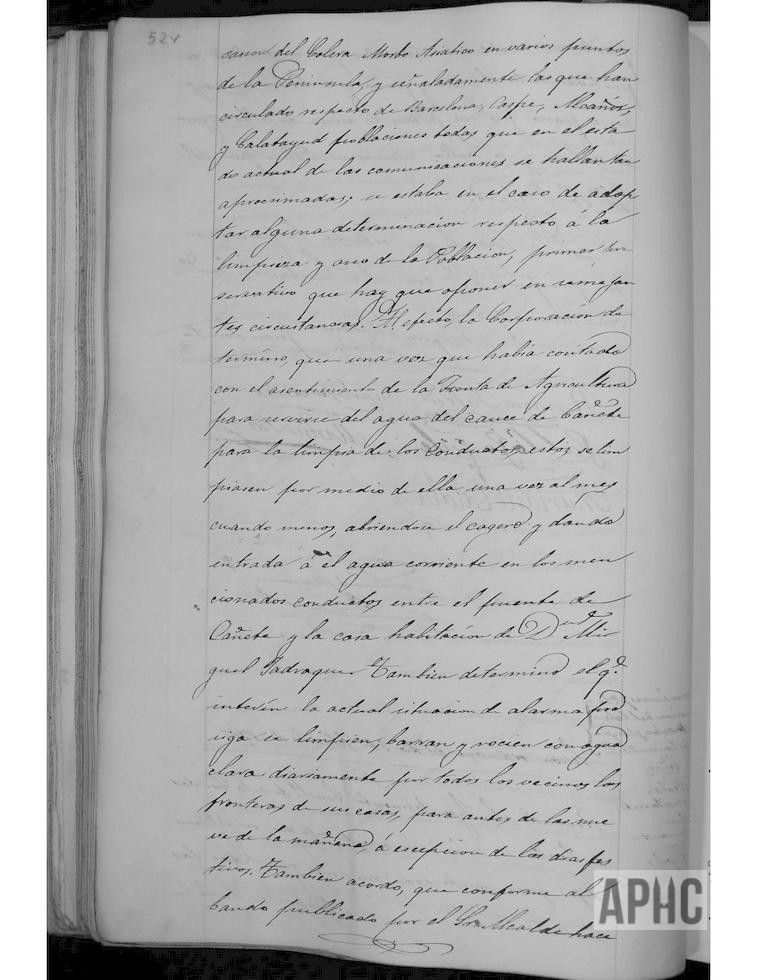 52v
cacion del Colera Morbo Asiatico en varios puntos
de la Peninsula, y señaladamente las que han
circulado respecto de Barcelona, Caspe, Alcañiz,
y Calatayud poblaciones todas que en el esta
do actual de las comunicaciones se hallan tan
aprocsimadas; se estaba en el caso de adop
tar alguna determinacion respecto á la
limpieza y aseo de la Poblacion, primer pre
servativo que hay que oponer en semejan
tes circustancias. Al efecto, la Corporacion de
termino, que una vez que habia contado
con el asentimiento de la Junta de Agricultura
para servirse del agua del cauce de Cañete
para la limpia de los conductos, estos se lim
piasen por medio de ella una vez al mes
cuando menos, abriendose el cagero y dando
entrada á el agua corriente en los men
cionados conductos entre el puente de
Cañete y la casa habitacion de D. Mi
guel Jadraque. Tambien determinó el q.e
interin la actual situacion de alarma pro
siga se limpien, barran y rocien con agua
clara diariamente por todos los vecinos las
fronteras de sus casas, para antes de las nue
ve de la mañana, á escepcion de los dias fes
tivos. Tambien acordo, que conforme al
bando publicado por el Sr. Alcalde hace
APHC